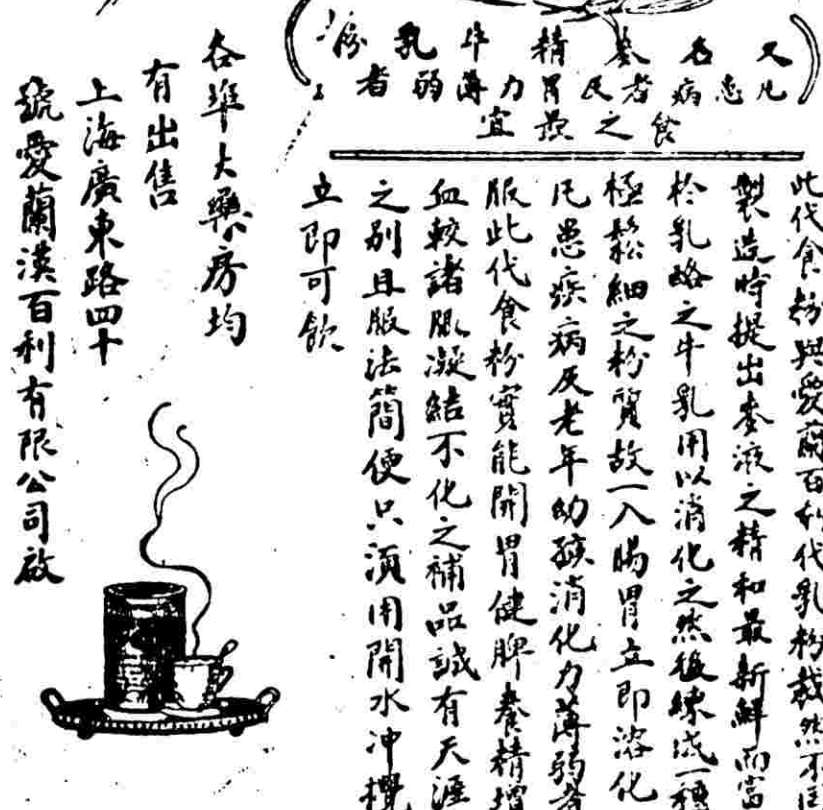 又名麥精牛乳粉
凡患病者及胃力薄弱者
食之最宜
此代食粉與愛蘭百利代乳粉截然不同
製造時提出麥液之精和最新鮮而富
於乳酪之牛乳用以消化之然後練成一種
極鬆細之粉質故一入腸胃立即溶化
凡患疾病及老年幼孩消化力薄弱者
服此代食粉實能開胃健脾養精增
血較諸服凝結不化之補品誠有天涯
之別且服法簡便只須用開水沖攪
立即可飲
各埠大藥房均
有出售
上海廣東路四十
號愛蘭漢百利有限公司啟